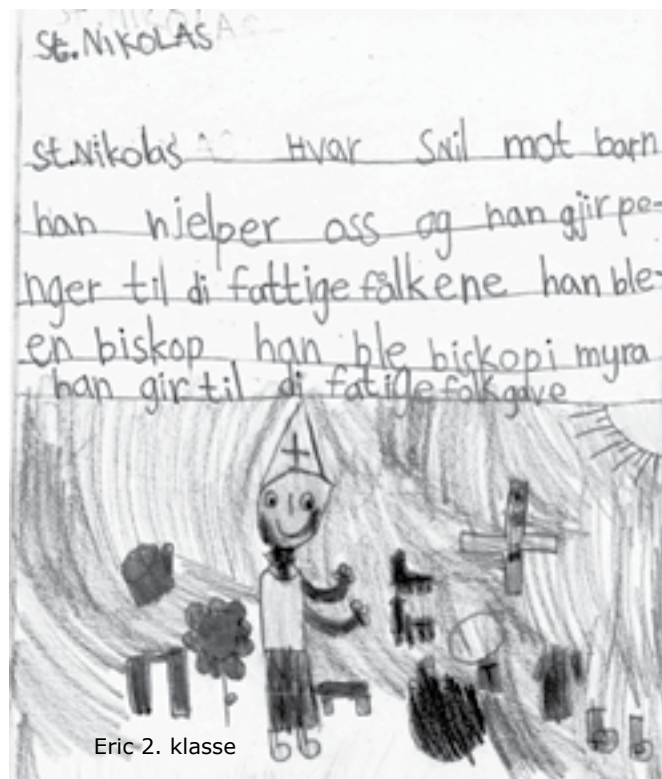 St. NIKOLAS
St. Nikolas Hvar Snil mot barn
han hjelper oss og han gjir pe-
nger til di fattige fålkene han ble-
en biskop han ble biskop i myra
han gir til di fatige fålk gave
Eric 2. klasse